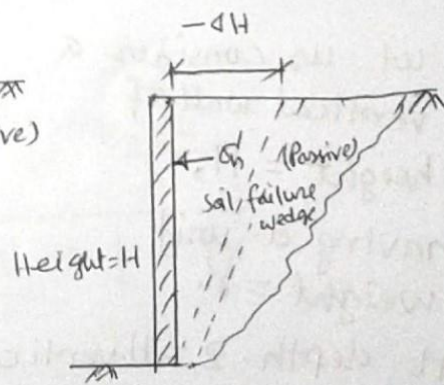 -ΔH
ve)
σh' (Passive)
soil failure
wedge
Height=H